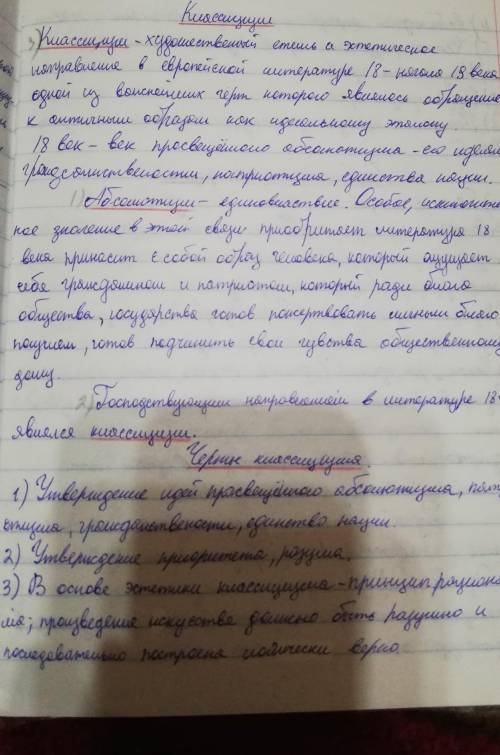 Классицизм
3) Классицизм - художественный стиль и эстетическое
направление в европейской литературе 18 - начала 19 века
одной из важнейших черт которого являлось обращение
к античным образам как идеальному эталону.
18 век - век просвещённого абсолютизма - его идеями
гражданственности, патриотизма, единства нации.
1) Абсолютизм - единовластие. Особое, исключитель
ное значение в этой связи приобретает литература 18
века приносит с собой образ человека, который ощущает
себя гражданином и патриотом, который ради блага
общества, государства готов пожертвовать личным благо
получием, готов подчинить свои чувства общественному
долгу.
2) Господствующим направлением в литературе 18
явился классицизм.
Черты классицизма.
1) Утверждение идей просвещённого абсолютизма, патр
отизма, гражданственности, единство нации.
2) Утверждение приоритета, разума.
3) В основе эстетики классицизма - принцип рациона
ма; произведение искусства должно быть разумно и
последовательно построена логически верно.